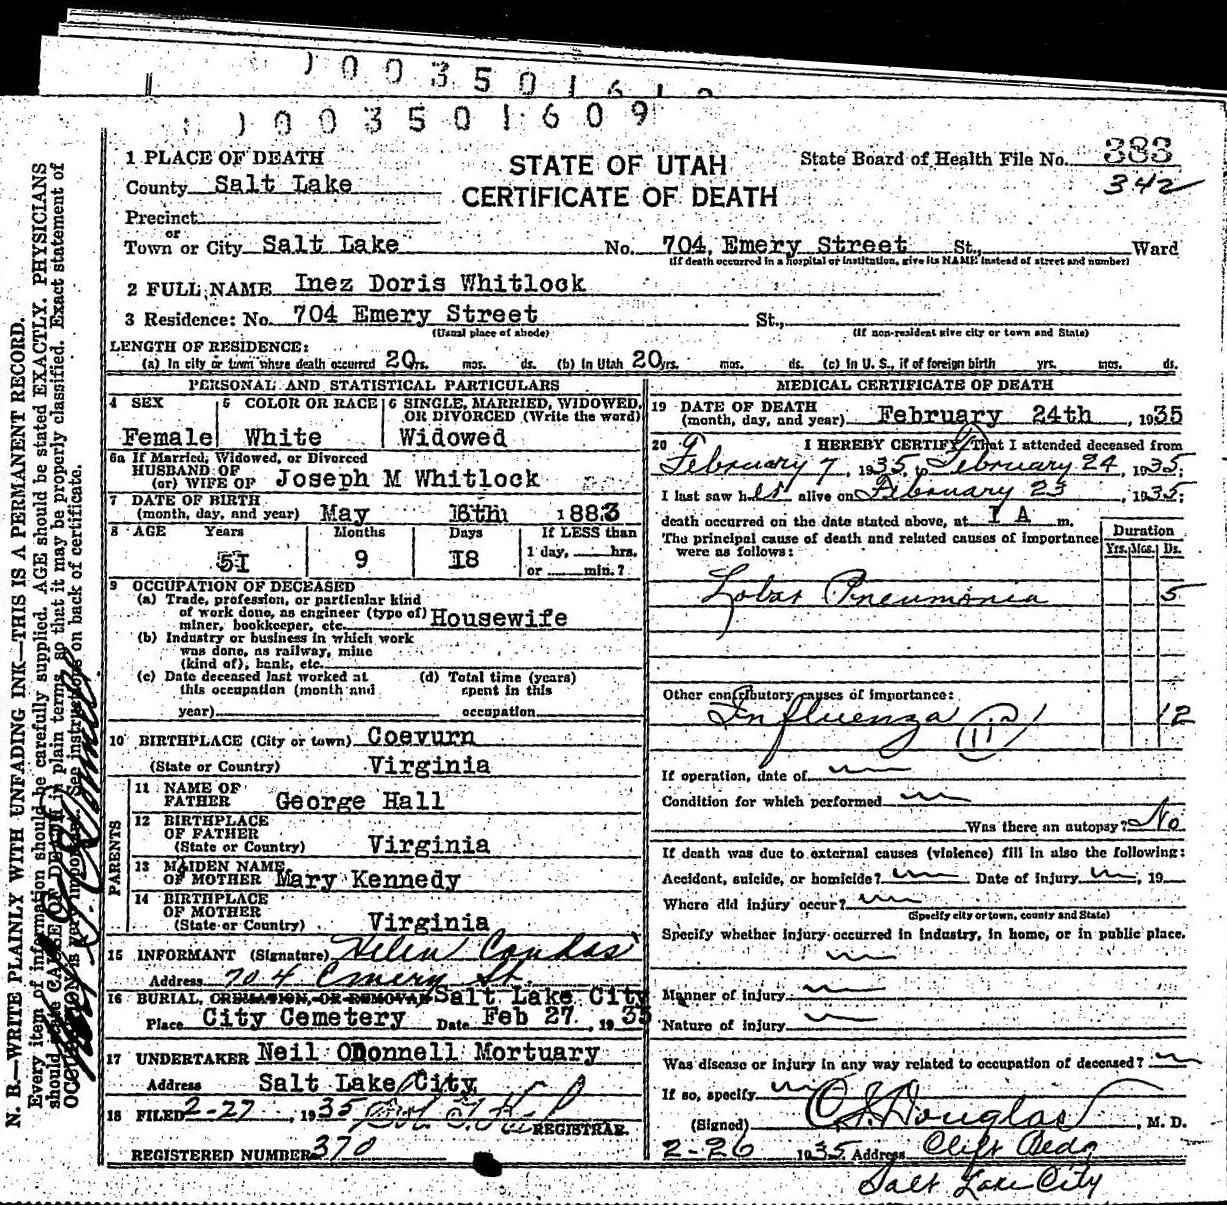 0 0 3 5 0 1 6 1
0 0 3 5 0 1 6 0 9
1 PLACE OF DEATH
STATE OF UTAH
CERTIFICATE OF DEATH
State Board of Health File No. 383
342
County Salt Lake
Precinct
or
Town or City Salt Lake No. 704, Emery Street St., Ward
(If death occurred in a hospital or institution, give its NAME instead of street and number)
2 FULL NAME Inez Doris Whitlock
3 Residence: No. 704 Emery Street St.,
(Usual place of abode) (If non-resident give city or town and State)
LENGTH OF RESIDENCE:
(a) In city or town where death occurred 20 yrs. mos. ds. (b) In Utah 20 yrs. mos. ds. (c) In U. S., if of foreign birth yrs. mos. ds.
PERSONAL AND STATISTICAL PARTICULARS
4 SEX 5 COLOR OR RACE 6 SINGLE, MARRIED, WIDOWED, OR DIVORCED (Write the word)
Female White Widowed
6a If Married, Widowed, or Divorced
HUSBAND OF
(or) WIFE OF Joseph M Whitlock
7 DATE OF BIRTH
(month, day, and year) May 6th 1883
8 AGE Years Months Days If LESS than
51 9 18 1 day, hrs.
or min.?
9 OCCUPATION OF DECEASED
(a) Trade, profession, or particular kind
of work done, as engineer (type of)
miner, bookkeeper, etc. Housewife
(b) Industry or business in which work
was done, as railway, mine
(kind of), bank, etc.
(c) Date deceased last worked at (d) Total time (years)
this occupation (month and spent in this
year) occupation
10 BIRTHPLACE (City or town) Coevurn
(State or Country) Virginia
PARENTS
11 NAME OF
FATHER George Hall
12 BIRTHPLACE
OF FATHER
(State or Country) Virginia
13 MAIDEN NAME
OF MOTHER Mary Kennedy
14 BIRTHPLACE
OF MOTHER
(State or Country) Virginia
15 INFORMANT (Signature) Helen Condas
Address 704 Emery St.
16 BURIAL, CREMATION, OR REMOVAL Salt Lake City
Place City Cemetery Date Feb 27, 1935
17 UNDERTAKER Neil ODonnell Mortuary
Address Salt Lake City
18 FILED 2-27, 1935
REGISTRAR.
REGISTERED NUMBER 370
MEDICAL CERTIFICATE OF DEATH
19 DATE OF DEATH
(month, day, and year) February 24th, 1935
20 I HEREBY CERTIFY, That I attended deceased from
February 7, 1935, to February 24, 1935;
I last saw her alive on February 23, 1935;
death occurred on the date stated above, at 1 A m.
The principal cause of death and related causes of importance
were as follows:
Duration
Yrs. Mos. Ds.
Lobar Pneumonia 5
Other contributory causes of importance:
Influenza 11 12
If operation, date of
Condition for which performed
Was there an autopsy? No
If death was due to external causes (violence) fill in also the following:
Accident, suicide, or homicide? Date of injury , 19
Where did injury occur?
(Specify city or town, county and State)
Specify whether injury occurred in industry, in home, or in public place.
Manner of injury
Nature of injury
Was disease or injury in any way related to occupation of deceased?
If so, specify
(Signed) Douglas, M. D.
2-26 1935 Address Clift Bldg
Salt Lake City
N. B.—WRITE PLAINLY WITH UNFADING INK—THIS IS A PERMANENT RECORD.
Every item of information should be carefully supplied. AGE should be stated EXACTLY. PHYSICIANS
should state CAUSE OF DEATH in plain terms, so that it may be properly classified. Exact statement of
OCCUPATION is very important. See instructions on back of certificate.